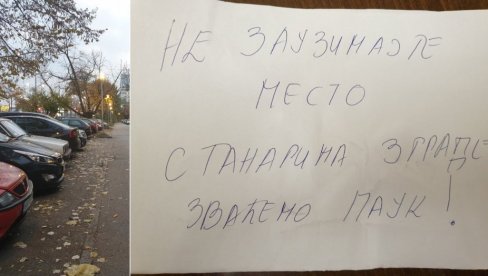 НЕ ЗАУЗИМАЈТЕ
МЕСТО
СТАНАРИМА ЗГРАДЕ
ЗВАЋЕМО ПАУК!